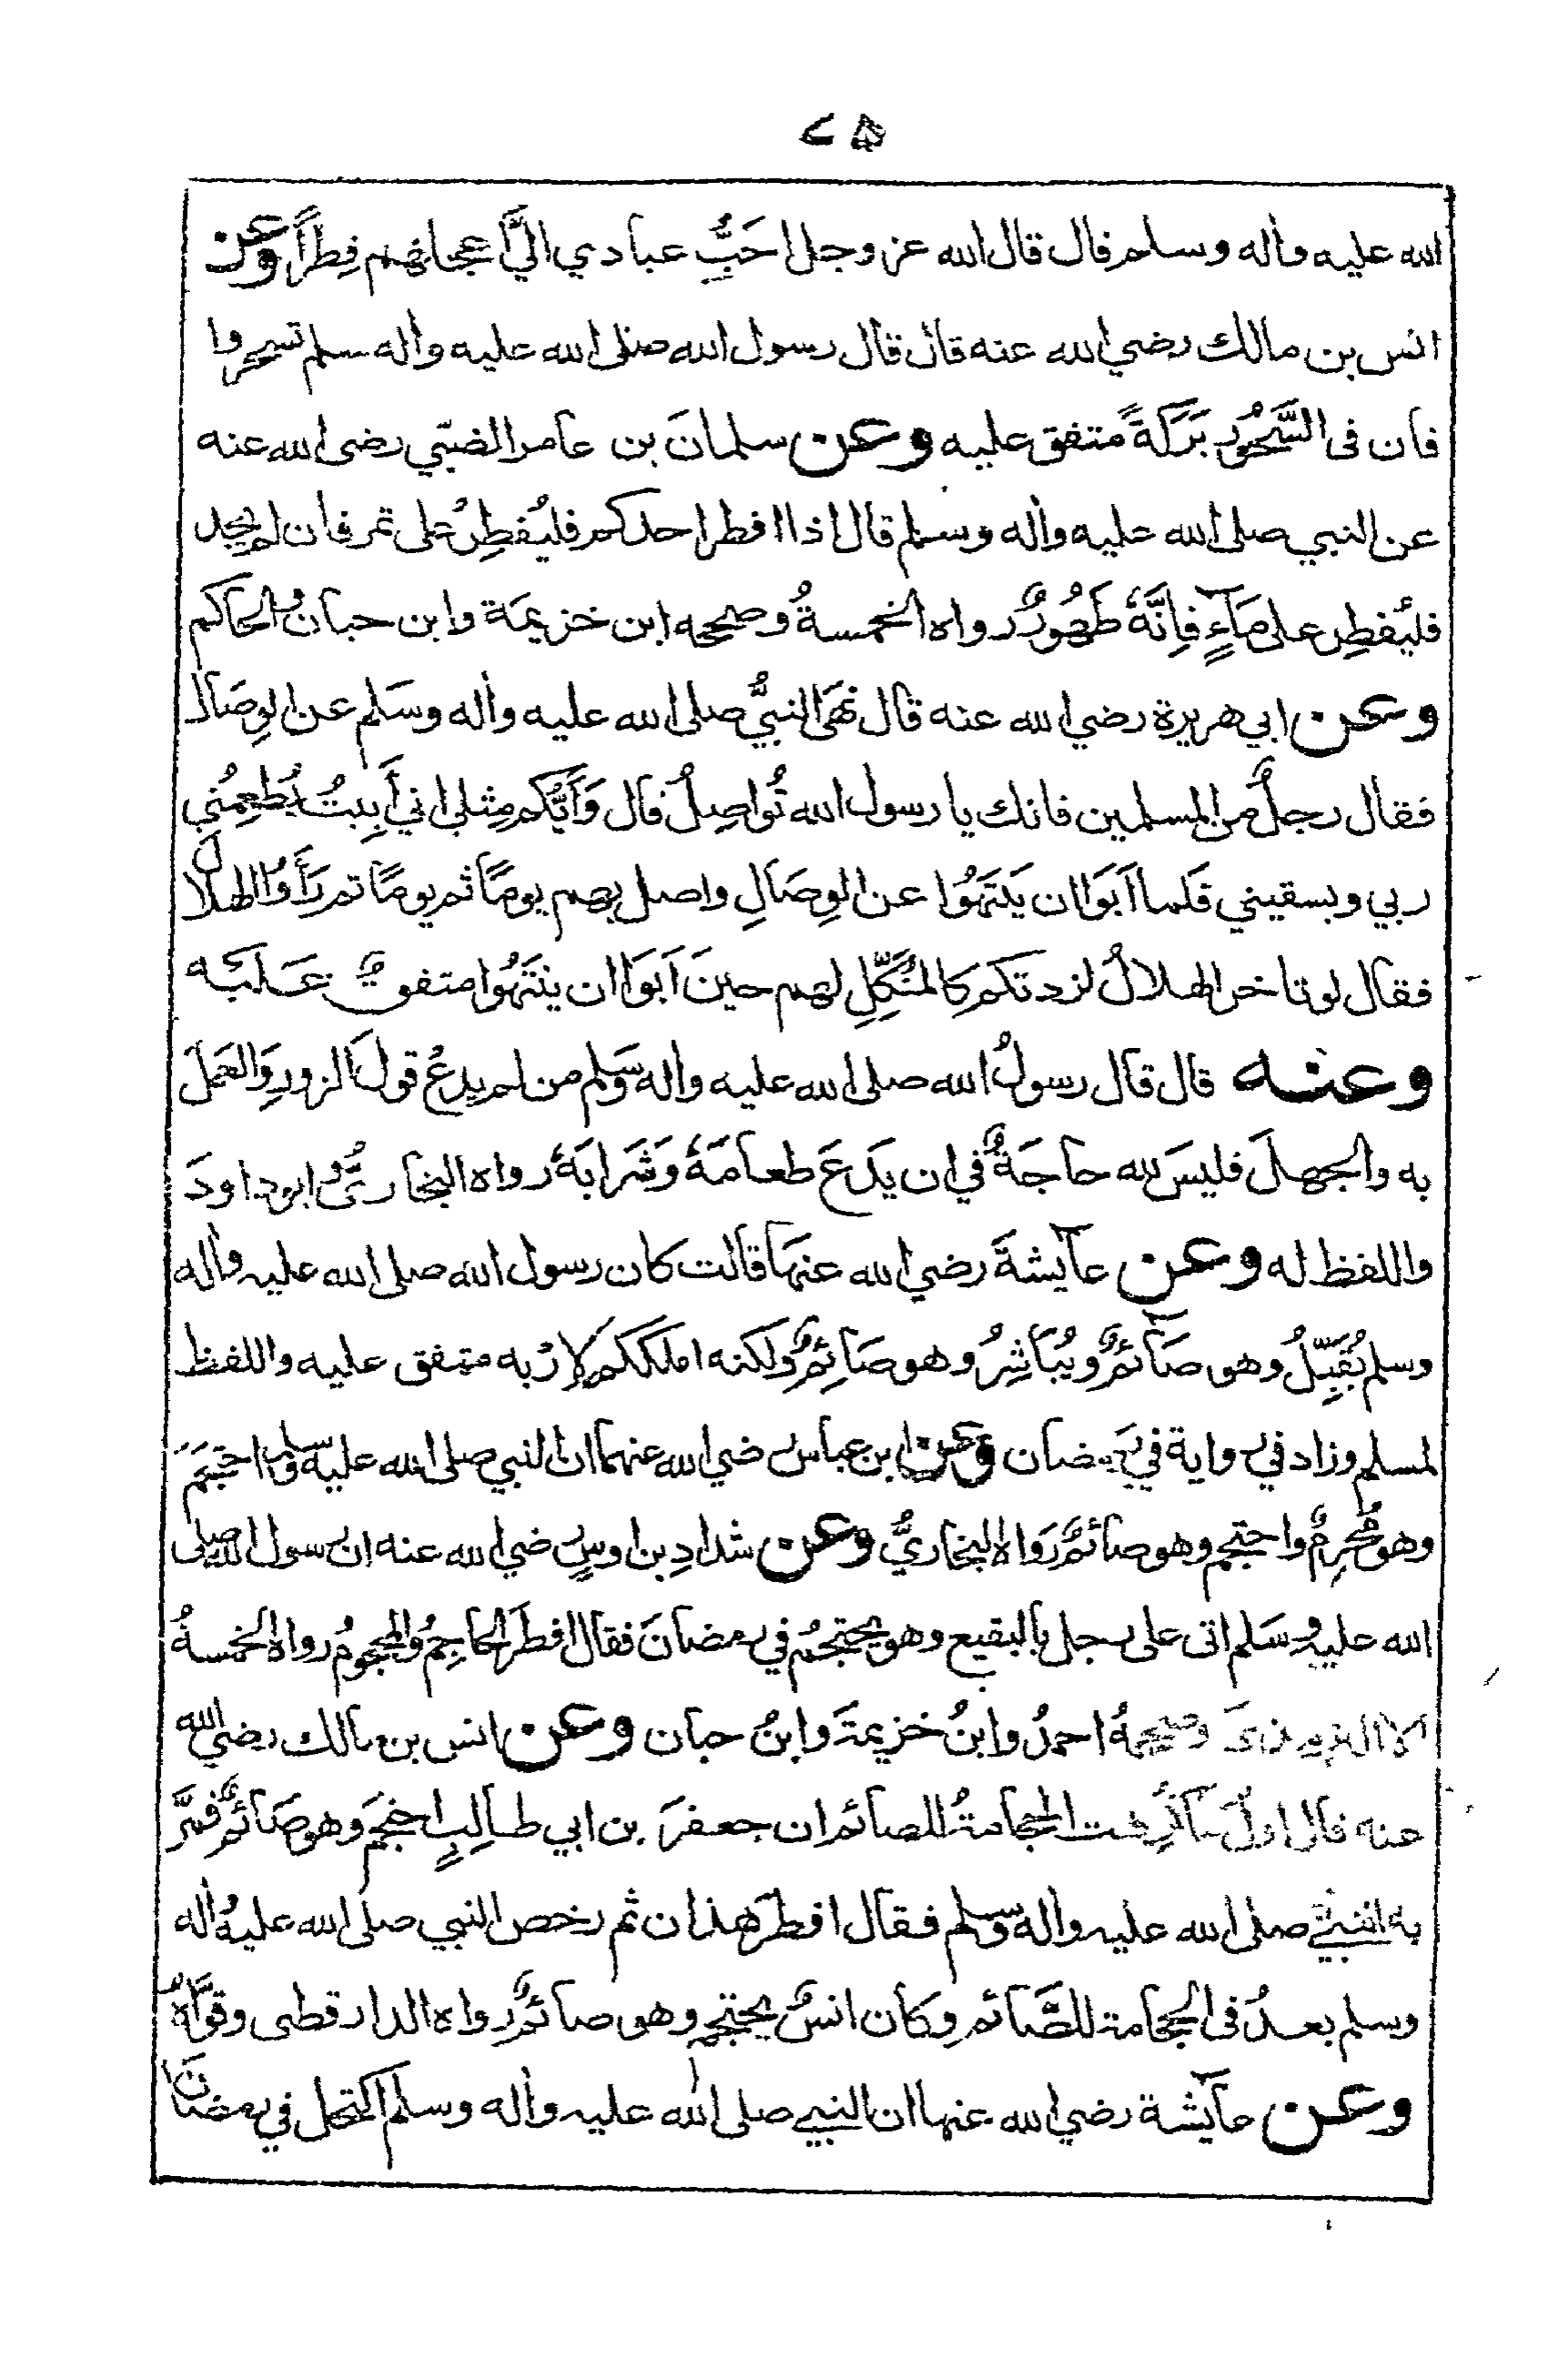 ٧٥
الله عليه واله وسلم قال قال الله عز وجل احَبُّ عبادي اليَّ أعجلهم فِطْراً وعن
انس بن مالك رضي الله عنه قال قال رسول الله صلى الله عليه واله سلم تسحروا
فان فى السَّحُور بَرَكَةً متفق عليه وعن سلمانَ بن عامر الضبّي رضى الله عنه
عن النبي صلى الله عليه واله وسلم قال اذا افطر احدكم فليُفطِرْ على تمر فان لم يجد
فليُفطِر على مَآءٍ فاِنَّهُ طَهُورٌ رواه الخمسةُ وصححه ابن خزيمَة وابن حبان والحاكم
وعن ابي هريرة رضي الله عنه قال نهَى النبيُّ صلى الله عليه واله وسَلم عن الوِصَال
فقال رجلٌ من المسلمين فانك يا رسول الله تُواصِلُ قال وَأيُّكم مِثلي اني أبِيتُ يُطعِمُني
ربي ويسقيني فَلما اَبَوا ان يَنتَهُوا عن الوِصَالِ واصل بهم يومًا ثم يومًا ثم رَأَوُا الهلال
فقال لو تاخر الهلالُ لزدتكم كالمُنَكِّلِ لهم حينَ اَبَوا ان ينتَهُوا متفقٌ عَلَيْه
وعنه قال قال رسولُ الله صلى الله عليه واله وسَلم من لم يدعْ قولَ الزورِ وَالعَمَلَ
به والجهلَ فليسَ لله حاجَةٌ في ان يَدَعَ طعامَهُ وَشَرابَهُ رواه البخاريُّ وابو داودَ
واللفظ له وعن عآيشةَ رضي الله عنهَا قالت كان رسول الله صلى الله عليه واله
وسلم يُقَبِّلُ وهو صَآئمٌ ويُبَاشِرُ وهو صَائِمٌ ولكنه املككم لاِرْبه متفق عليه واللفظ
لمسلم وزاد في رواية في رمضان وعن ابن عباس رضي الله عنهما ان النبي صلى الله عليه وسلم احتجَمَ
وهو مُحْرِمٌ واحتجم وهو صائمٌ رَوَاه البخاريُّ وعن شدادِ بن اوسٍ رضي الله عنه ان رسول الله صلى
الله عليه وسَلم اتى على رجل بالبقيع وهو يحتجمُ في رمضانَ فقال افطَرَ الحاجِمُ والمحجومُ رواه الخمسةُ
الا الترمذيَ وصححهُ احمدُ وابنُ خزيمةَ وابنُ حبان وعن انس بن مالك رضي الله
عنه قال اولُ ما كُرِهت الحجامةُ للصائم ان جعفرَ بن ابي طالبٍ احتجمَ وهو صَائمٌ فمَرَّ
به النبيُّ صلى الله عليه واله وسلم فقال افطَرَ هذان ثم رخص النبي صلى الله عليه واله
وسلم بعدُ فى الحجامة للصَّائم وكان انسٌ يحتجم وهو صائمٌ رواه الدارقطنى وقوَّاهُ
وعن عآيشة رضي الله عنها ان النبي صلى الله عليه واله وسلم اكتحل في رمضان